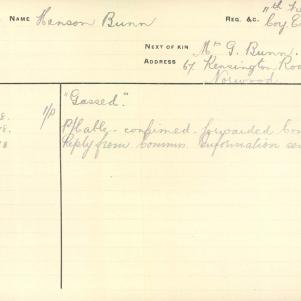 NAME Hanson Bunn REG. &C. 11th
NEXT OF KIN Mr G. Bunn.
ADDRESS 67 Kensington Roa
Norwood
"Gassed."
8. 1/P P/Cable - confirmed - forwarded
8. Reply from Commn. Information